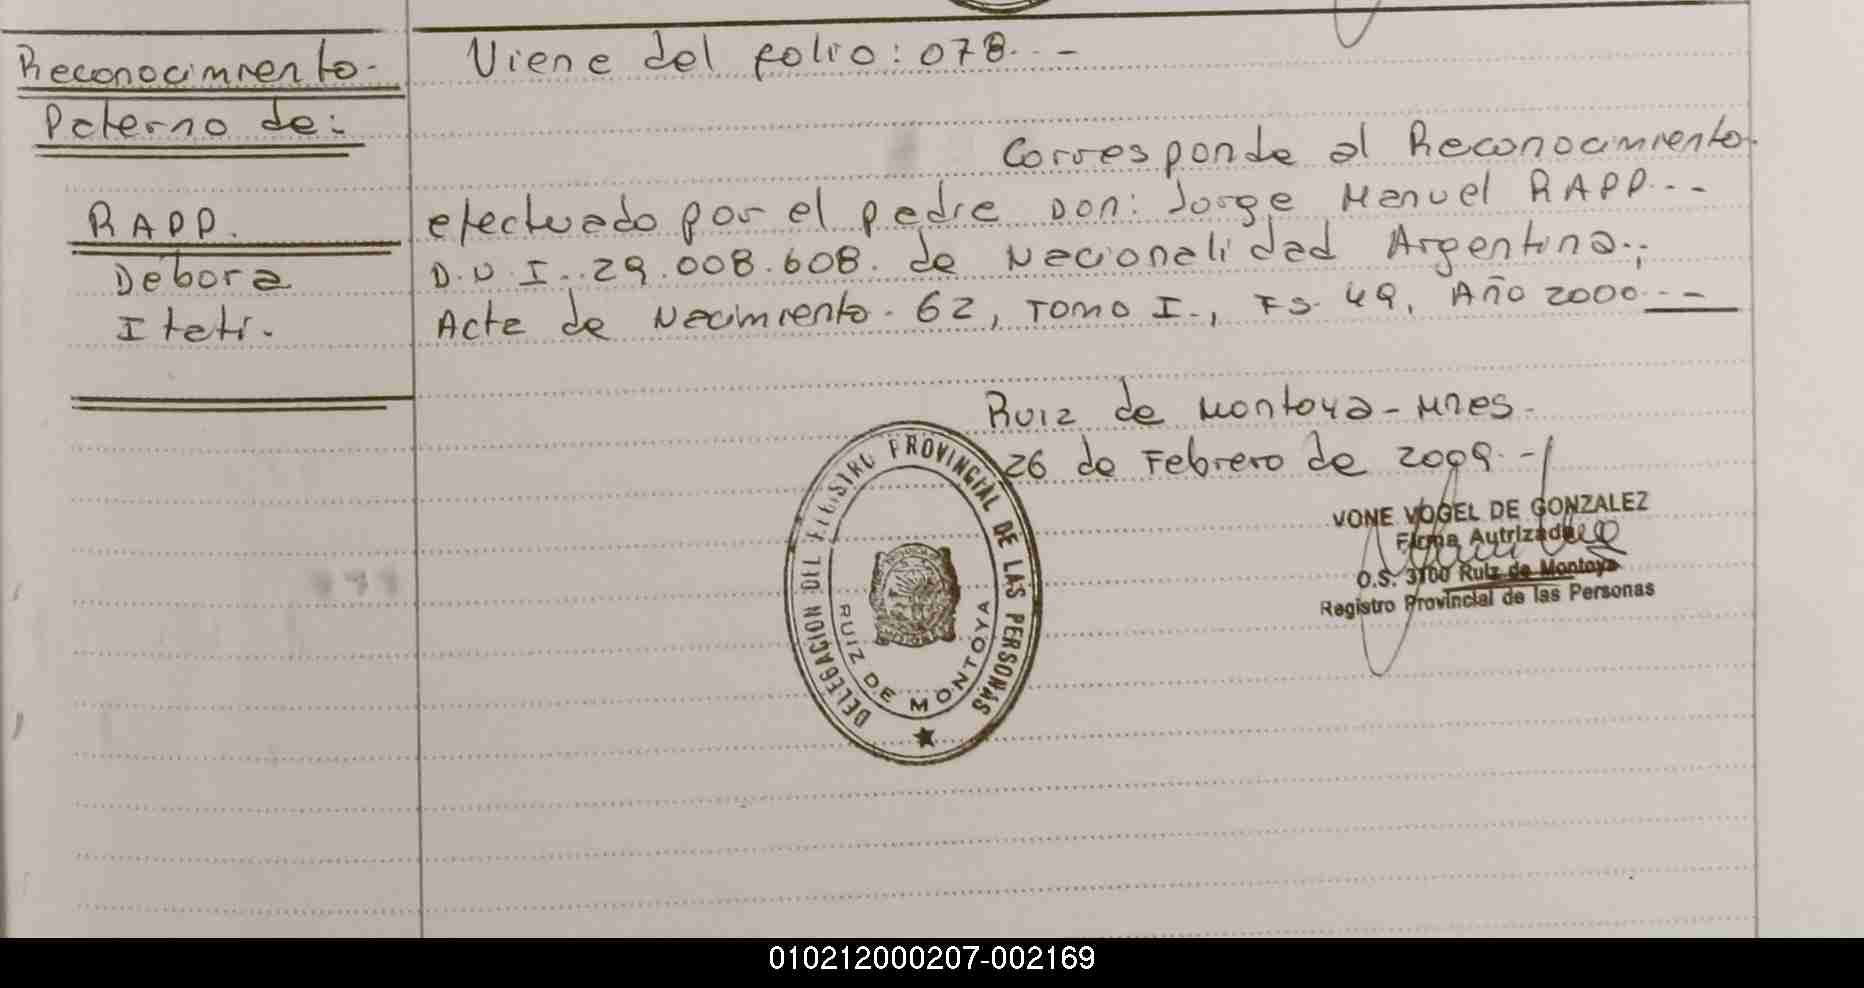 Reconocimiento.
Paterno de:
RAPP.
Debora
Itatí.
Viene del folio: 078.--
Corresponde al Reconocimiento.
efectuado por el padre Don: Jorge Manuel RAPP.--
D.N.I. 29.008.608. de Nacionalidad Argentina.;
Acta de Nacimiento. 62, Tomo I., Fs. 49, Año 2000.--
Ruiz de Montoya - Mnes.
26 de Febrero de 2009.-
DELEGACION DEL REGISTRO PROVINCIAL DE LAS PERSONAS
RUIZ DE MONTOYA
VONE VOGEL DE GONZALEZ
Firma Autrizada
O.S. 3100 Ruiz de Montoya
Registro Provincial de las Personas
010212000207-002169